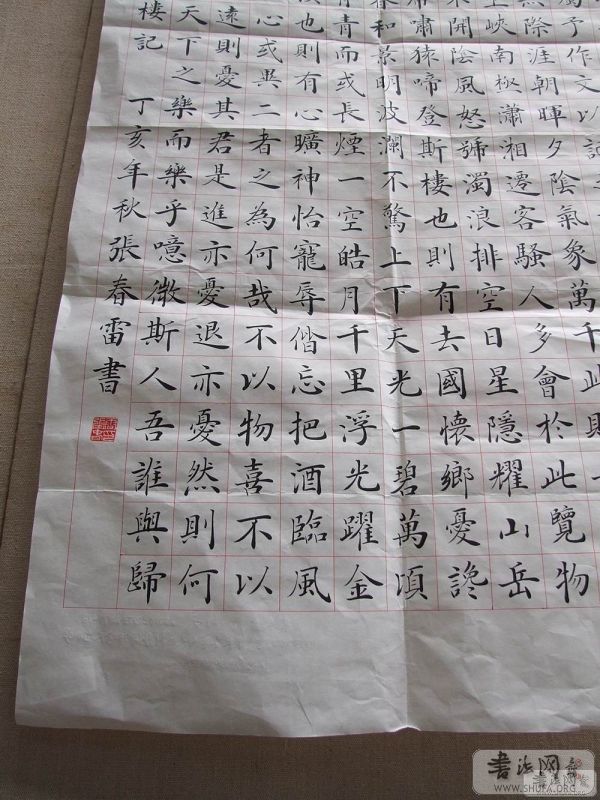 屬予作文以記
際涯朝暉夕陰氣象萬千此則
峽南極瀟湘遷客騷人多會於此覽物
開陰風怒號濁浪排空日星隱耀山岳
嘯猿啼登斯樓也則有去國懷鄉憂讒
春和景明波瀾不驚上下天光一碧萬頃
青而或長煙一空皓月千里浮光躍金
也則有心曠神怡寵辱偕忘把酒臨風
心或異二者之為何哉不以物喜不以
遠則憂其君是進亦憂退亦憂然則何
天下之樂而樂乎噫微斯人吾誰與歸
樓記 丁亥年秋張春雷書
书法网
WWW.SHUFA.ORG